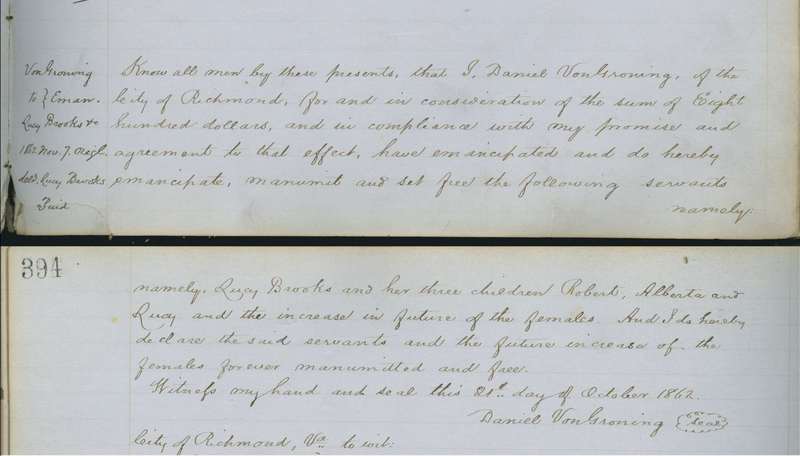 VonGroning
to } Eman.
Lucy Brooks &c
1862. Nov. 7. Origl.
deld. Lucy Brooks
Know all men by these presents, that I, Daniel VonGroning, of the
City of Richmond, for and in consideration of the sum of Eight
hundred dollars, and in compliance with my promise and
agreement to that effect, have emancipated and do hereby
emancipate, manumit and set free the following servants
namely.
394
namely. Lucy Brooks and her three children Robert, Alberta and
Lucy and the increase in future of the females. And I do hereby
declare the said servants and the future increase of the
females forever manumitted and free.
Witness my hand and seal this 21st. day of October 1862.
Daniel VonGroning seal
City of Richmond, Va. to wit: